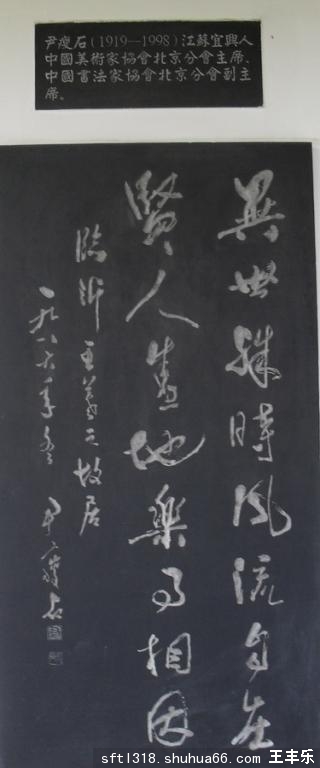 尹瘦石(1919—1998)江蘇宜興人
中國美術家協會北京分會主席、
中國書法家協會北京分會副主
席。
異世殊時風流自在
賢人地樂相因
臨沂王羲之故居
一九八六年冬 尹瘦石
王丰乐
sftl318.shuhua66.com